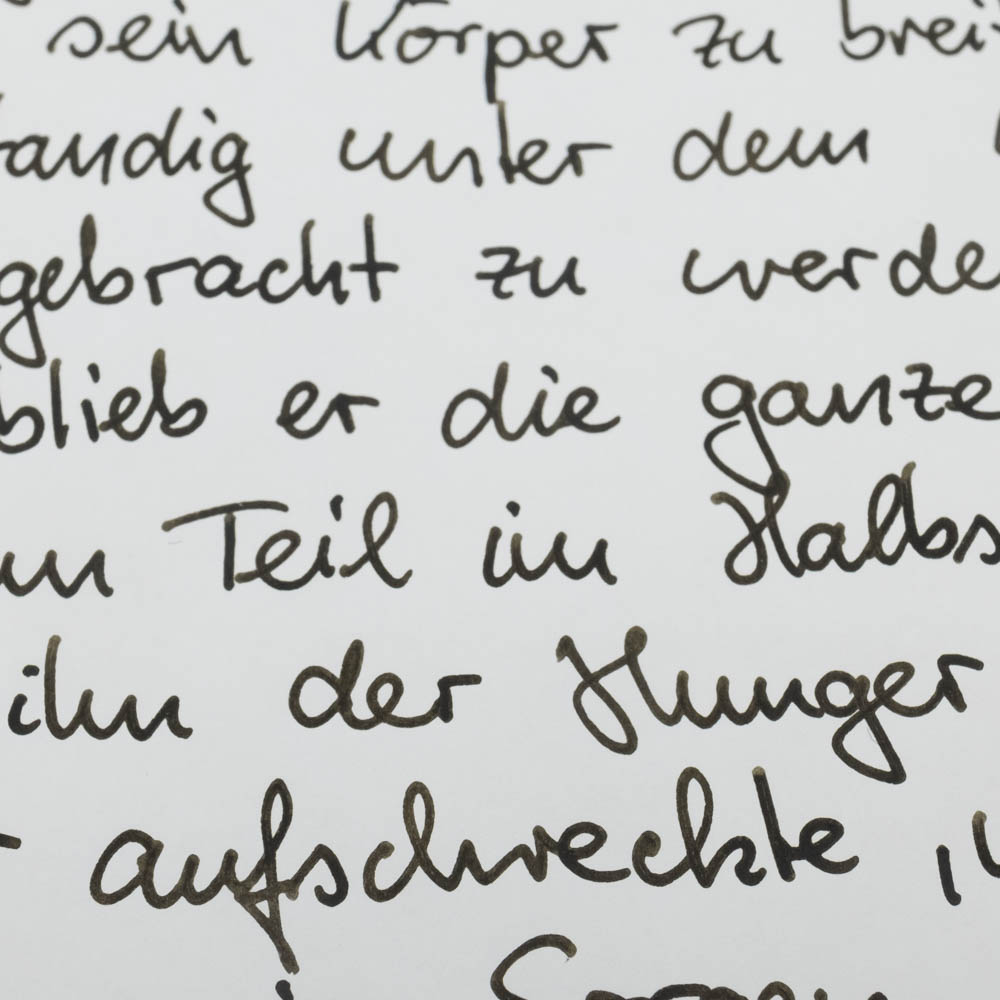 sein Körper zu breit
ständig unter dem
gebracht zu werde
blieb er die ganze
um Teil im Halbs
ihn der Hunger
aufschreckte,
Sorgen